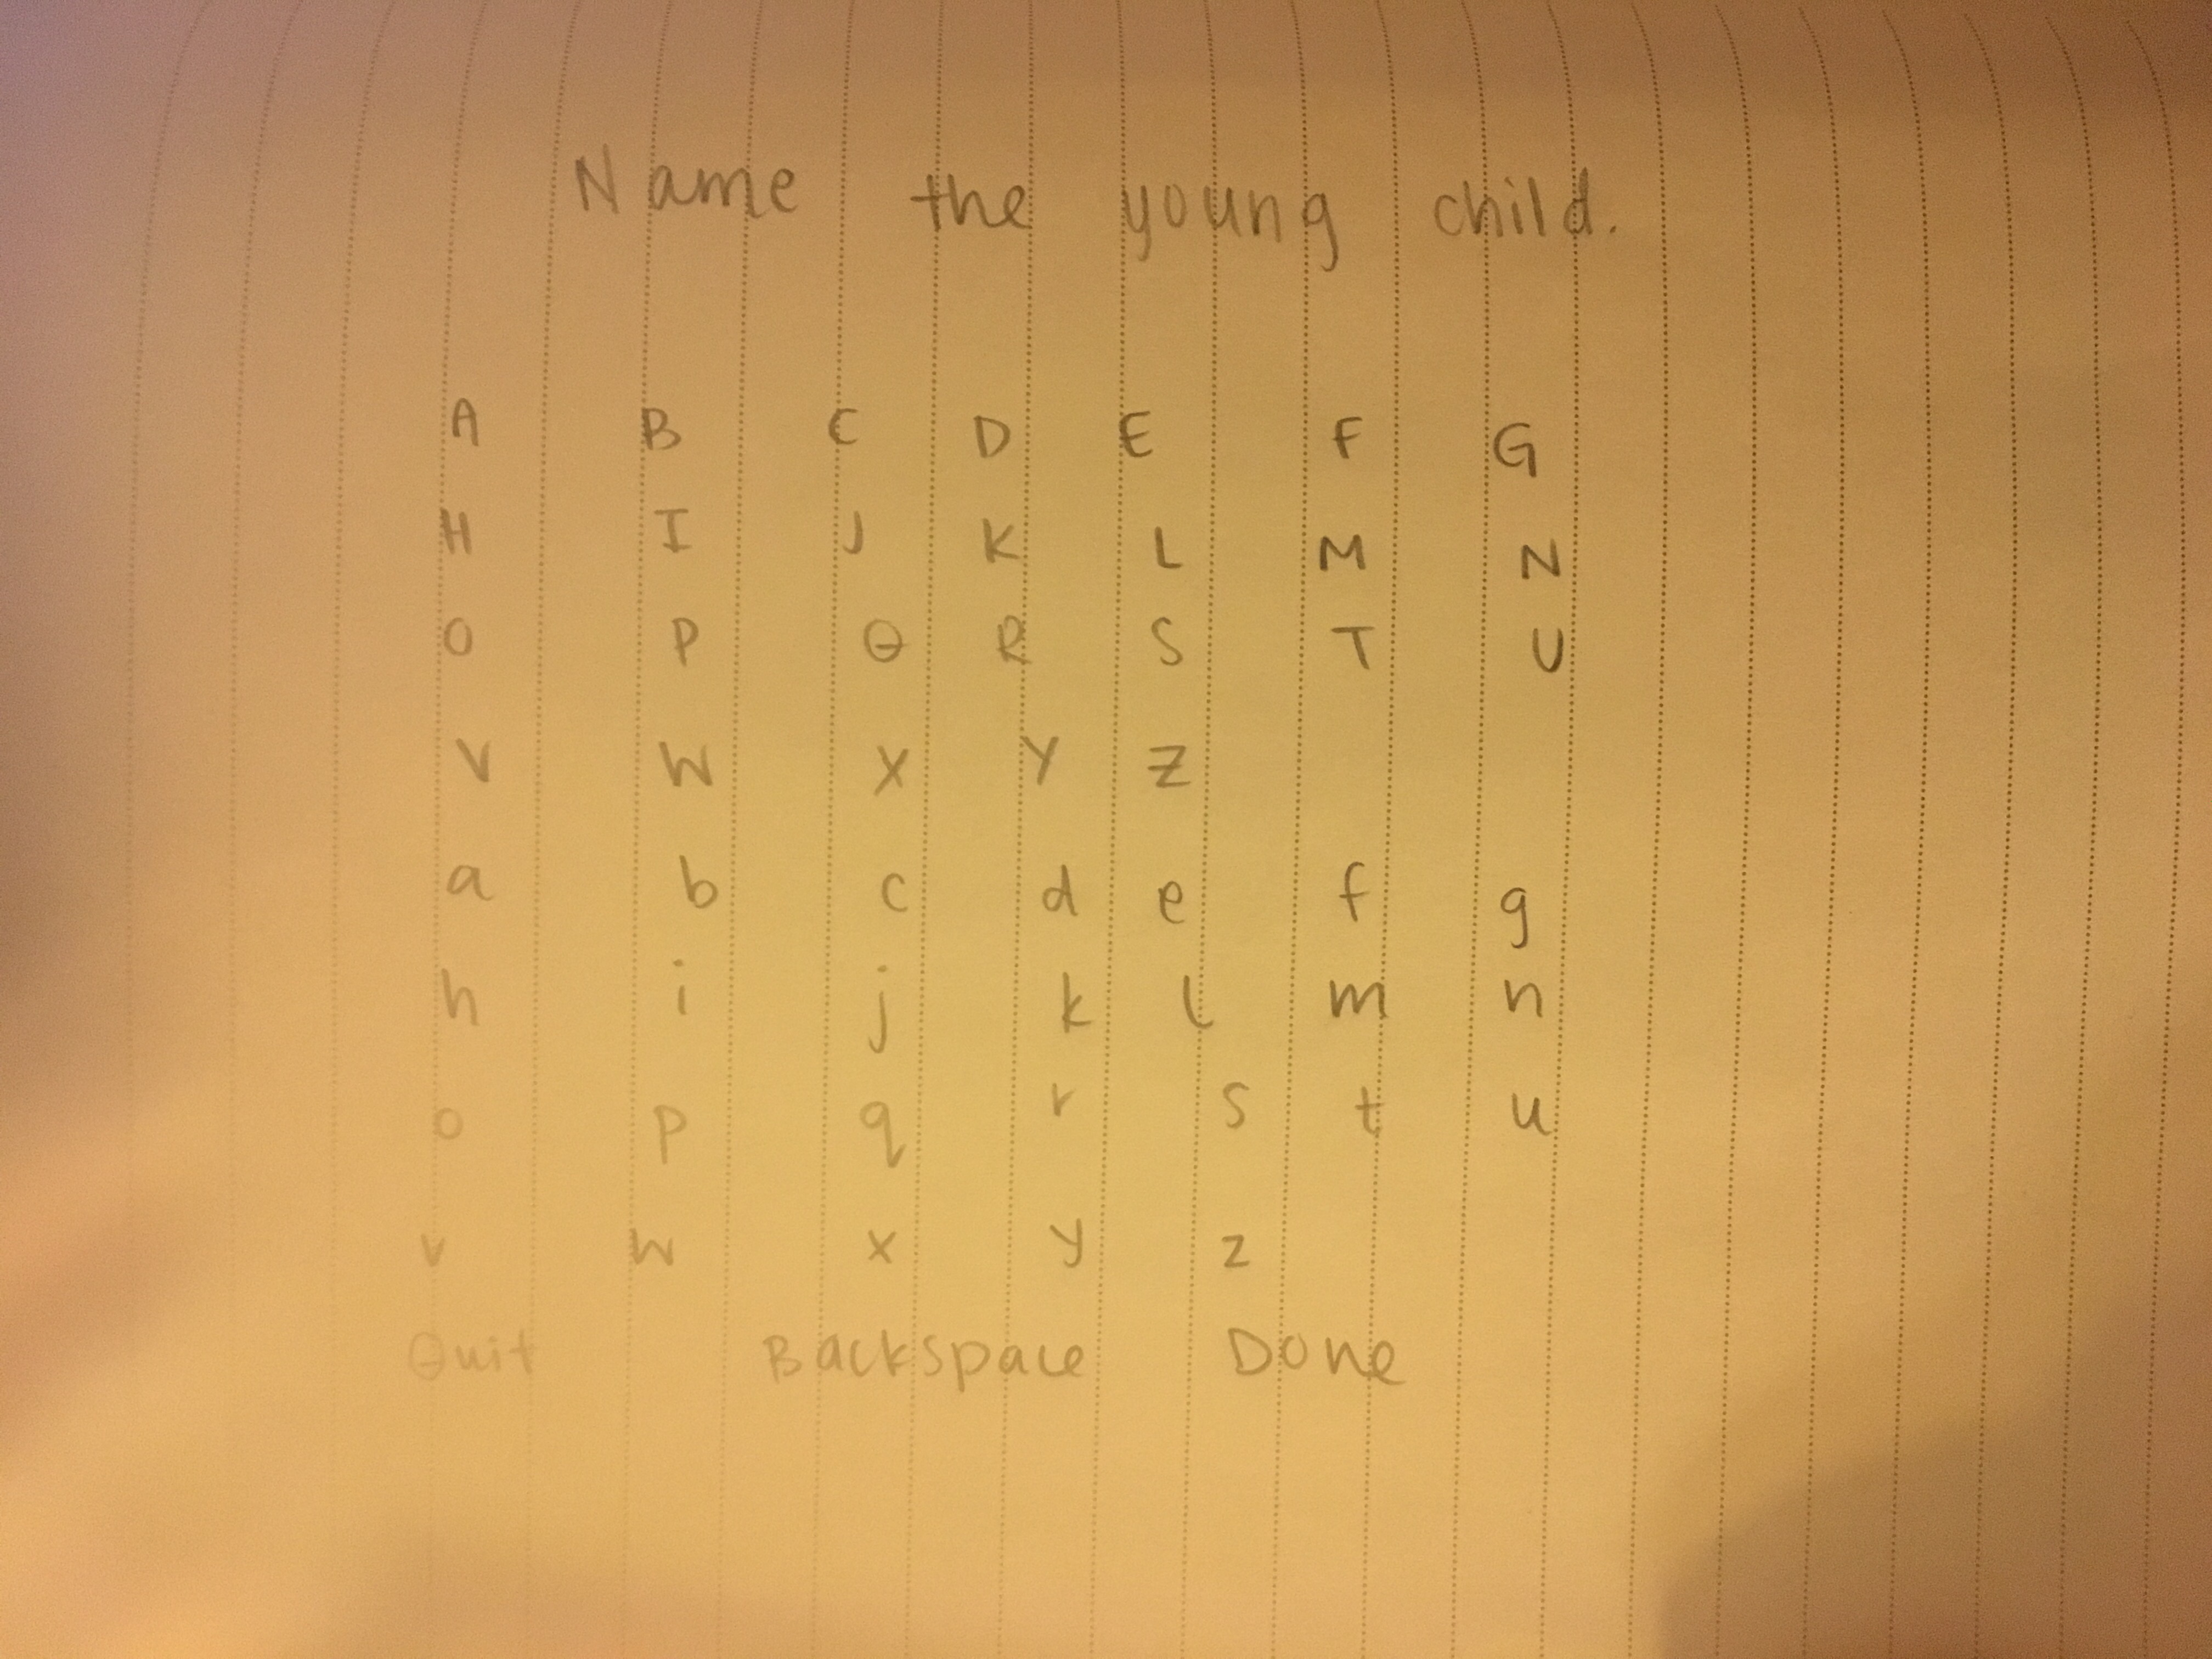 Name the young child.
A B C D E F G
H I J K L M N
O P Q R S T U
V W X Y Z
a b c d e f g
h i j k l m n
o p q r s t u
v w x y z
Quit Backspace Done